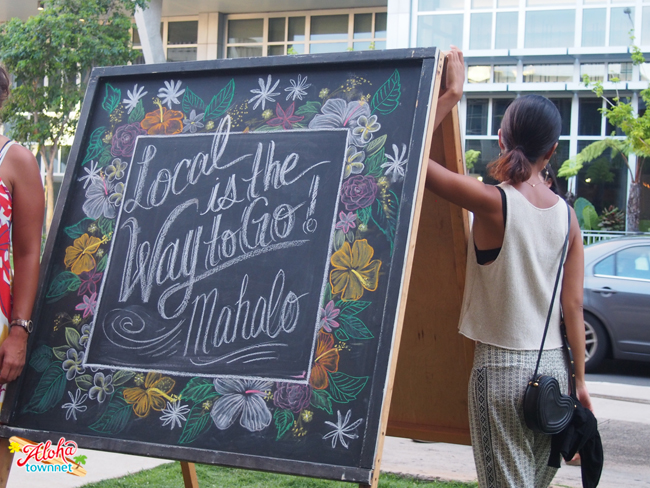 Local
is the
Way to Go!
Mahalo
Aloha
townnet